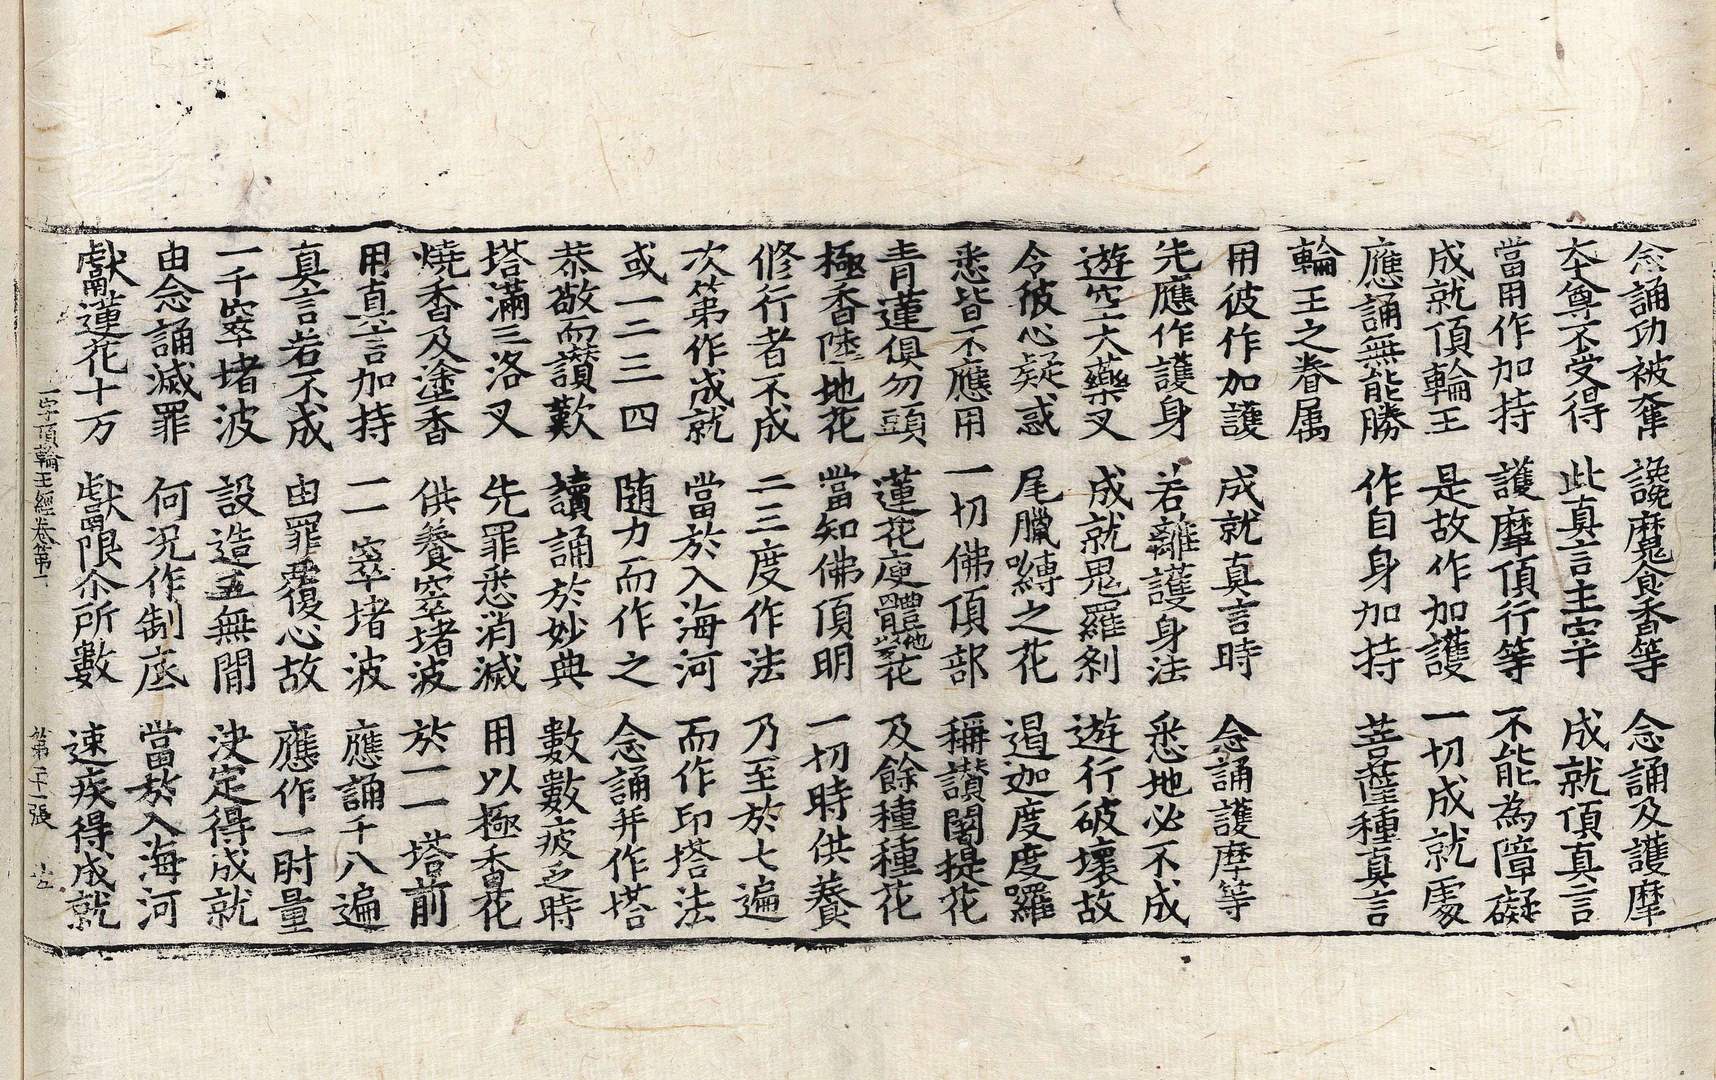 念誦功被奪　讒魔食香等　念誦及護摩
本尊不受得　此真言主宰　成就頂真言
當用作加持　護摩頂行等　不能為障礙
成就頂輪王　是故作加護　一切成就處
應誦無能勝　作自身加持　菩薩種真言
輪王之眷属
用彼作加護　成就真言時　念誦護摩等
先應作護身　若離護身法　悉地必不成
遊空大藥叉　成就鬼羅剎　遊行破壞故
令彼心疑惑　尾臘嚩之花　遏迦度度羅
悉皆不應用　一切佛頂部　稱讃闍提花
青蓮俱勿頭　蓮花庾體他以反花　及餘種種花
極香陸地花　當知佛頂明　一切時供養
修行者不成　二三度作法　乃至於七遍
次第作成就　當於入海河　而作印塔法
或一二三四　随力而作之　念誦并作塔
恭敬而讃歎　讀誦於妙典　數數疲乏時
塔滿三洛叉　先罪悉消滅　用以極香花
燒香及塗香　供養窣堵波　於一一塔前
用真言加持　一一窣堵波　應誦千八遍
真言若不成　由罪覆心故　應作一肘量
一千窣堵波　設造五無間　決定得成就
由念誦滅罪　何況作制底　當於入海河
獻蓮花十万　獻限尒所數　速疾得成就
一字頂輪王經卷第一　第二十一張